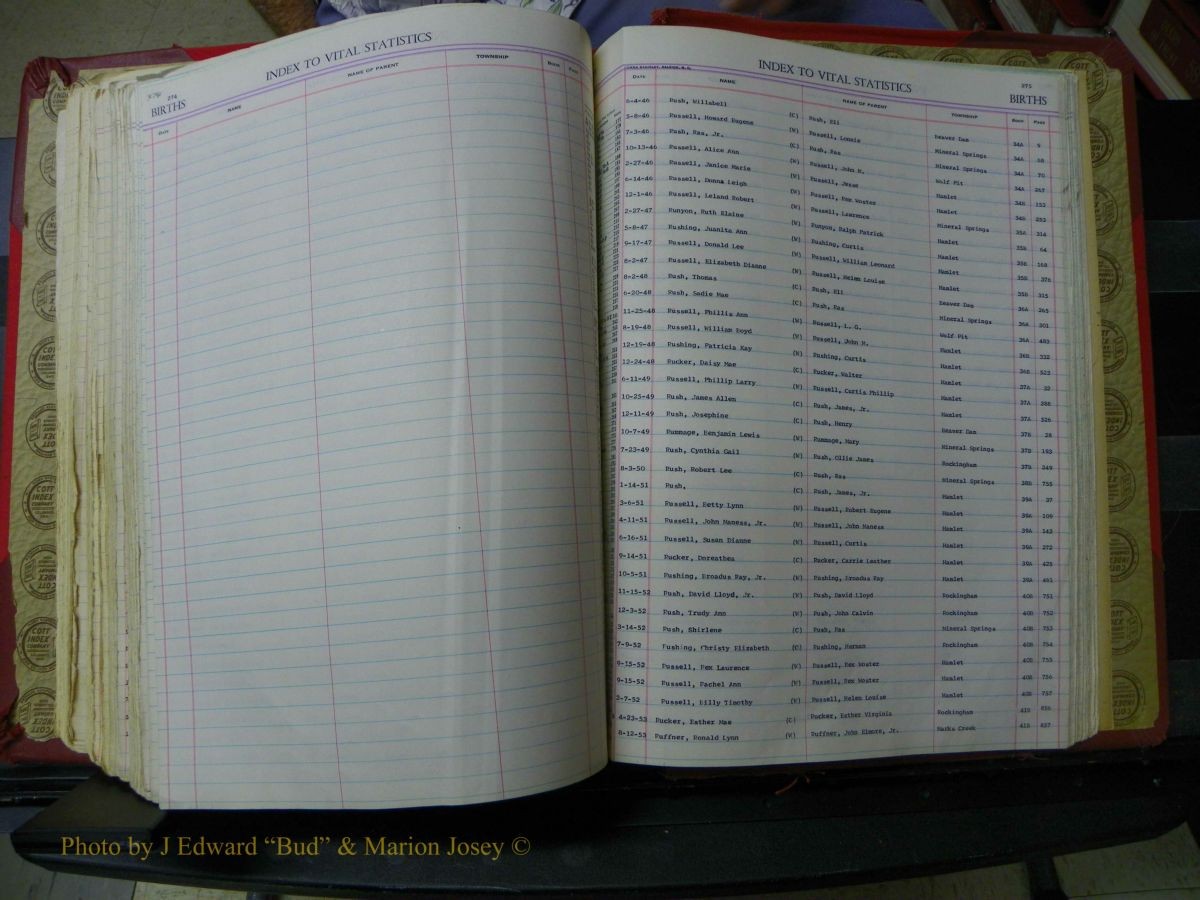 INDEX TO VITAL STATISTICS
274
BIRTHS
DATE NAME NAME OF PARENT TOWNSHIP BOOK PAGE
INDEX TO VITAL STATISTICS
275
BIRTHS
DATE NAME NAME OF PARENT TOWNSHIP BOOK PAGE
6-4-46 Rush, Willabell (C) Rush, Eli Beaver Dam 34A 9
5-8-46 Russell, Howard Eugene (W) Russell, Lonnie Mineral Springs 34A 58
7-3-46 Rush, Ras, Jr. (C) Rush, Ras Mineral Springs 34A 70
10-13-46 Russell, Alice Ann (W) Russell, John M. Wolf Pit 34A 267
2-27-46 Russell, Janice Marie (W) Russell, Jesse Hamlet 34B 153
6-14-46 Russell, Donna Leigh (W) Russell, Rex Woster Hamlet 34B 253
12-1-46 Russell, Leland Robert (W) Russell, Laurence Mineral Springs 35A 314
2-27-47 Runyon, Ruth Elaine (W) Runyon, Ralph Patrick Hamlet 35B 64
5-8-47 Rushing, Juanita Ann (W) Rushing, Curtis Hamlet 35B 168
9-17-47 Russell, Donald Lee (W) Russell, William Leonard Hamlet 35B 376
8-2-47 Russell, Elizabeth Dianne (W) Russell, Helen Louise Hamlet 35B 315
8-2-48 Rush, Thomas (C) Rush, Eli Beaver Dam 36A 265
6-20-48 Rush, Sadie Mae (C) Rush, Ras Mineral Springs 36A 301
11-25-48 Russell, Phillis Ann (W) Russell, L. G. Wolf Pit 36A 483
8-19-48 Russell, William Boyd (W) Russell, John M. Hamlet 36B 332
12-19-48 Rushing, Patricia Kay (W) Rushing, Curtis Hamlet 36B 523
12-24-48 Rucker, Daisy Mae (C) Rucker, Walter Hamlet 37A 32
6-11-49 Russell, Phillip Larry (W) Russell, Curtis Phillip Hamlet 37A 288
10-25-49 Rush, James Allen (C) Rush, James, Jr. Hamlet 37A 526
12-11-49 Rush, Josephine (C) Rush, Henry Beaver Dam 37B 28
10-7-49 Rummage, Benjamin Lewis (W) Rummage, Mary Mineral Springs 37B 193
7-23-49 Rush, Cynthia Gail (W) Rush, Ollie James Rockingham 37B 349
8-3-50 Rush, Robert Lee (C) Rush, Ras Mineral Springs 38B 755
1-14-51 Rush, (C) Rush, James, Jr. Hamlet 39A 37
3-6-51 Russell, Betty Lynn (W) Russell, Robert Eugene Hamlet 39A 109
4-11-51 Russell, John Maness, Jr. (W) Russell, John Maness Hamlet 39A 143
6-16-51 Russell, Susan Dianne (W) Russell, Curtis Hamlet 39A 272
9-14-51 Rucker, Doreathea (C) Rucker, Carrie Leather Hamlet 39A 425
10-5-51 Rushing, Broadus Ray, Jr. (W) Rushing, Broadus Ray Hamlet 39A 461
11-15-52 Rush, David Lloyd, Jr. (W) Rush, David Lloyd Rockingham 40B 751
12-3-52 Rush, Trudy Ann (W) Rush, John Calvin Rockingham 40B 752
3-14-52 Rush, Shirlene (C) Rush, Ras Mineral Springs 40B 753
7-9-52 Rushing, Christy Elizabeth (C) Rushing, Herman Rockingham 40B 754
9-15-52 Russell, Rex Laurence (W) Russell, Rex Woster Hamlet 40B 755
9-15-52 Russell, Rachel Ann (W) Russell, Rex Woster Hamlet 40B 756
2-7-52 Russell, Billy Timothy (W) Russell, Helen Louise Hamlet 40B 757
4-23-53 Rucker, Esther Mae (C) Rucker, Esther Virginia Rockingham 41B
8-12-53 Ruffner, Ronald Lynn (W) Ruffner, John Elmore, Jr. Marks Creek 41B
Photo by J Edward “Bud” & Marion Josey ©